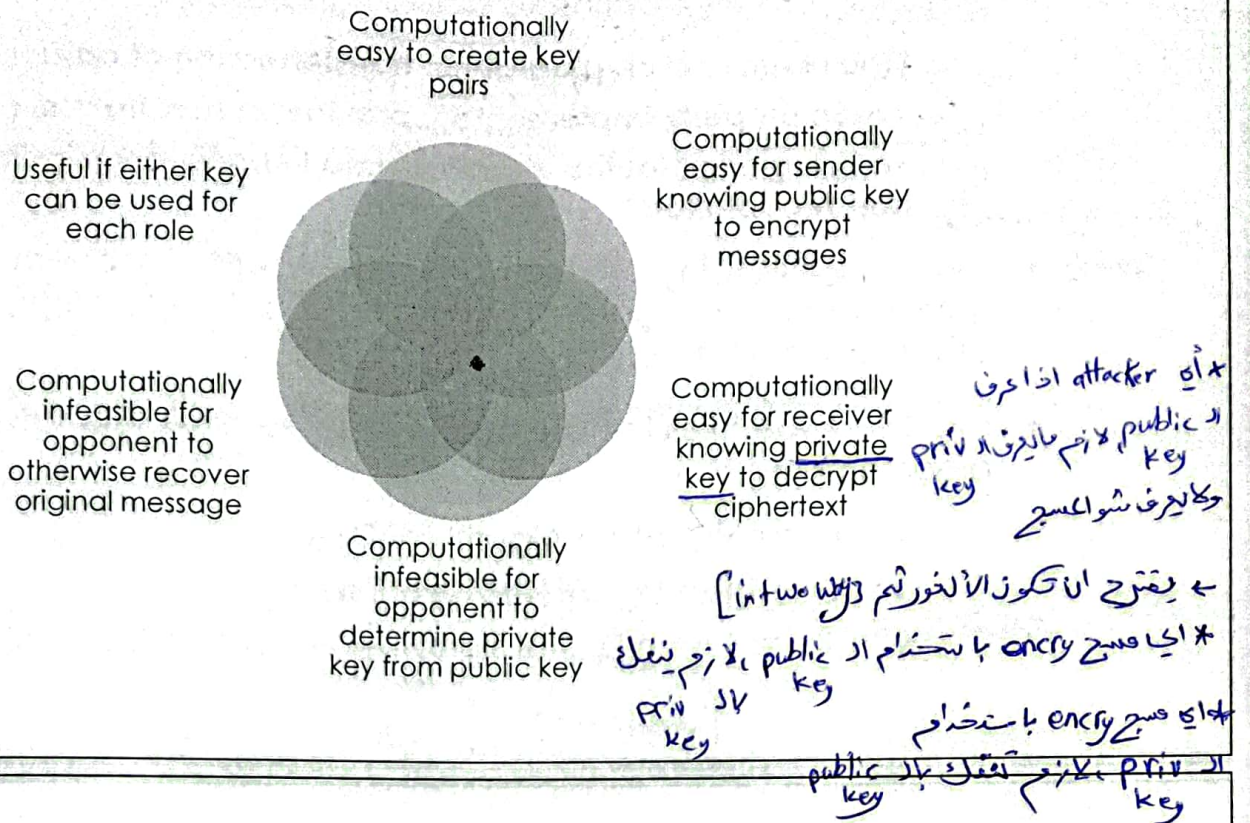 Computationally
easy to create key
pairs
Computationally
easy for sender
knowing public key
to encrypt
messages
Useful if either key
can be used for
each role
Computationally
infeasible for
opponent to
otherwise recover
original message
Computationally
easy for receiver
knowing private
key to decrypt
ciphertext
Computationally
infeasible for
opponent to
determine private
key from public key
* أي attacker اذا عرف
الـ public key، لازم ما يعرف الـ priv key
ولا يعرف شو المسج
← يقترح ان تكون الألغورثم [in two way]
* اي مسج encry باستخدام الـ public key، لازم ينفك
بالـ priv key
* واي مسج encry باستخدام
الـ priv key، لازم تنفك بالـ public key